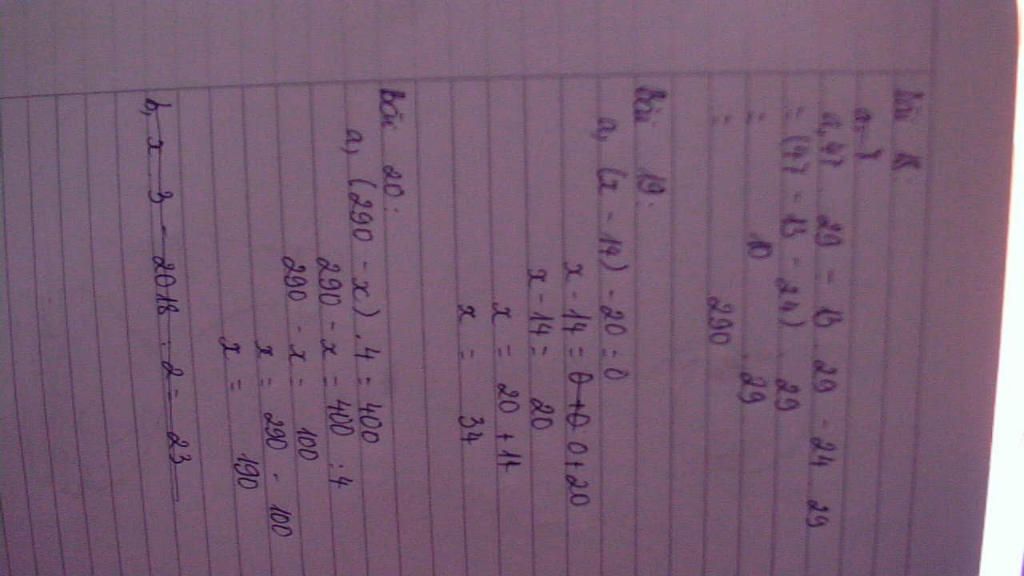 Bài 18:
a, 47 . 29 - 13 . 29 - 24 . 29
= (47 - 13 - 24) . 29
= 10 . 29
= 290
Bài 19:
a, (x - 14) - 20 = 0
x - 14 = 0 + 20
x - 14 = 20
x = 20 + 14
x = 34
Bài 20:
a, (290 - x) . 4 = 400
290 - x = 400 : 4
290 - x = 100
x = 290 - 100
x = 190
b, x . 3 - 2018 : 2 = 23